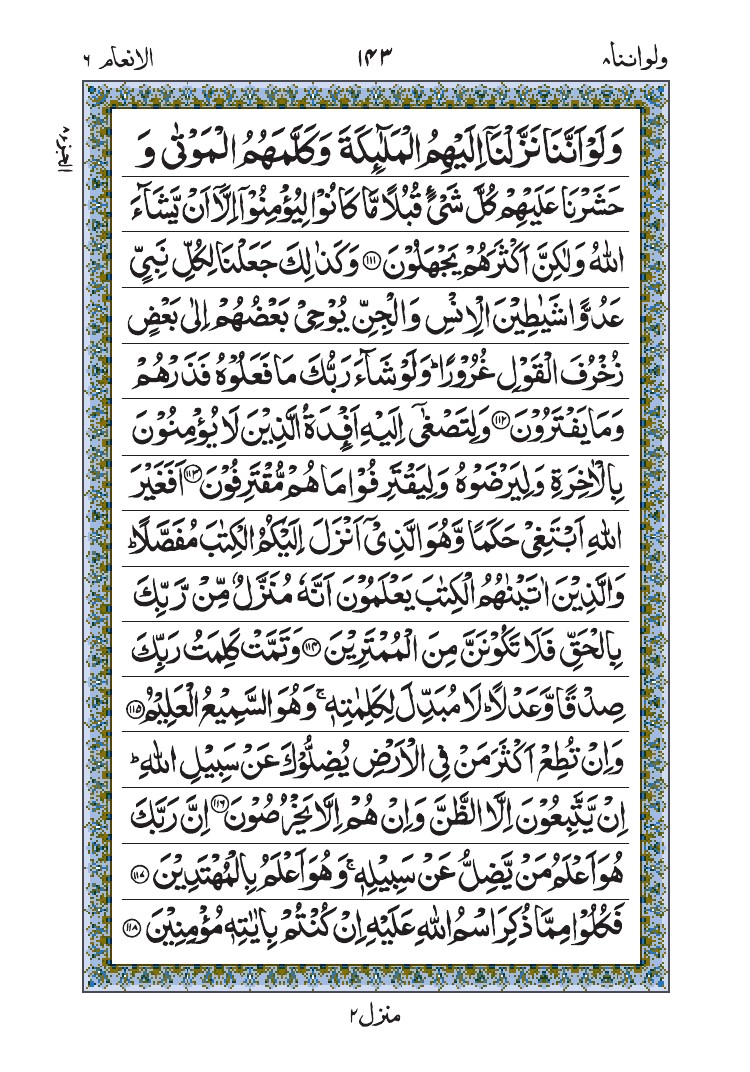 ولواننا ۸
۱۴۳
الانعام ۶
الجزء ۸
وَلَوۡ اَنَّنَا نَزَّلۡنَاۤ اِلَيۡهِمُ الۡمَلٰٓٮِٕكَةَ وَكَلَّمَهُمُ الۡمَوۡتٰى وَ
حَشَرۡنَا عَلَيۡهِمۡ كُلَّ شَىۡءٍ قُبُلًا مَّا كَانُوۡا لِيُؤۡمِنُوۡۤا اِلَّاۤ اَنۡ يَّشَآءَ
اللّٰهُ وَلٰـكِنَّ اَكۡثَرَهُمۡ يَجۡهَلُوۡنَ ﴿۱۱۱﴾ وَكَذٰلِكَ جَعَلۡنَا لِكُلِّ نَبِىٍّ
عَدُوًّا شَيٰطِيۡنَ الۡاِنۡسِ وَالۡجِنِّ يُوۡحِىۡ بَعۡضُهُمۡ اِلٰى بَعۡضٍ
زُخۡرُفَ الۡقَوۡلِ غُرُوۡرًا‌ ؕ وَلَوۡ شَآءَ رَبُّكَ مَا فَعَلُوۡهُ‌ فَذَرۡهُمۡ
وَمَا يَفۡتَرُوۡنَ ﴿۱۱۲﴾ وَلِتَصۡغٰٓى اِلَيۡهِ اَفۡـِٕدَةُ الَّذِيۡنَ لَا يُؤۡمِنُوۡنَ
بِالۡاٰخِرَةِ وَلِيَرۡضَوۡهُ وَلِيَقۡتَرِفُوۡا مَا هُمۡ مُّقۡتَرِفُوۡنَ ﴿۱۱۳﴾ اَفَغَيۡرَ
اللّٰهِ اَبۡتَغِىۡ حَكَمًا وَّهُوَ الَّذِىۡۤ اَنۡزَلَ اِلَيۡكُمُ الۡـكِتٰبَ مُفَصَّلًا‌ ؕ
وَالَّذِيۡنَ اٰتَيۡنٰهُمُ الۡـكِتٰبَ يَعۡلَمُوۡنَ اَنَّهٗ مُنَزَّلٌ مِّنۡ رَّبِّكَ
بِالۡحَـقِّ‌ فَلَا تَكُوۡنَنَّ مِنَ الۡمُمۡتَرِيۡنَ ﴿۱۱۴﴾ وَتَمَّتۡ كَلِمَتُ رَبِّكَ
صِدۡقًا وَّعَدۡلًا‌ ؕ لَا مُبَدِّلَ لِكَلِمٰتِهٖ‌ ۚ وَهُوَ السَّمِيۡعُ الۡعَلِيۡمُ ﴿۱۱۵﴾
وَاِنۡ تُطِعۡ اَكۡثَرَ مَنۡ فِى الۡاَرۡضِ يُضِلُّوۡكَ عَنۡ سَبِيۡلِ اللّٰهِ‌ ؕ
اِنۡ يَّتَّبِعُوۡنَ اِلَّا الظَّنَّ وَاِنۡ هُمۡ اِلَّا يَخۡرُصُوۡنَ ﴿۱۱۶﴾ اِنَّ رَبَّكَ
هُوَ اَعۡلَمُ مَنۡ يَّضِلُّ عَنۡ سَبِيۡلِهٖ‌ ۚ وَهُوَ اَعۡلَمُ بِالۡمُهۡتَدِيۡنَ ﴿۱۱۷﴾
فَـكُلُوۡا مِمَّا ذُكِرَ اسۡمُ اللّٰهِ عَلَيۡهِ اِنۡ كُنۡتُمۡ بِاٰيٰتِهٖ مُؤۡمِنِيۡنَ ﴿۱۱۸﴾
منزل ۲